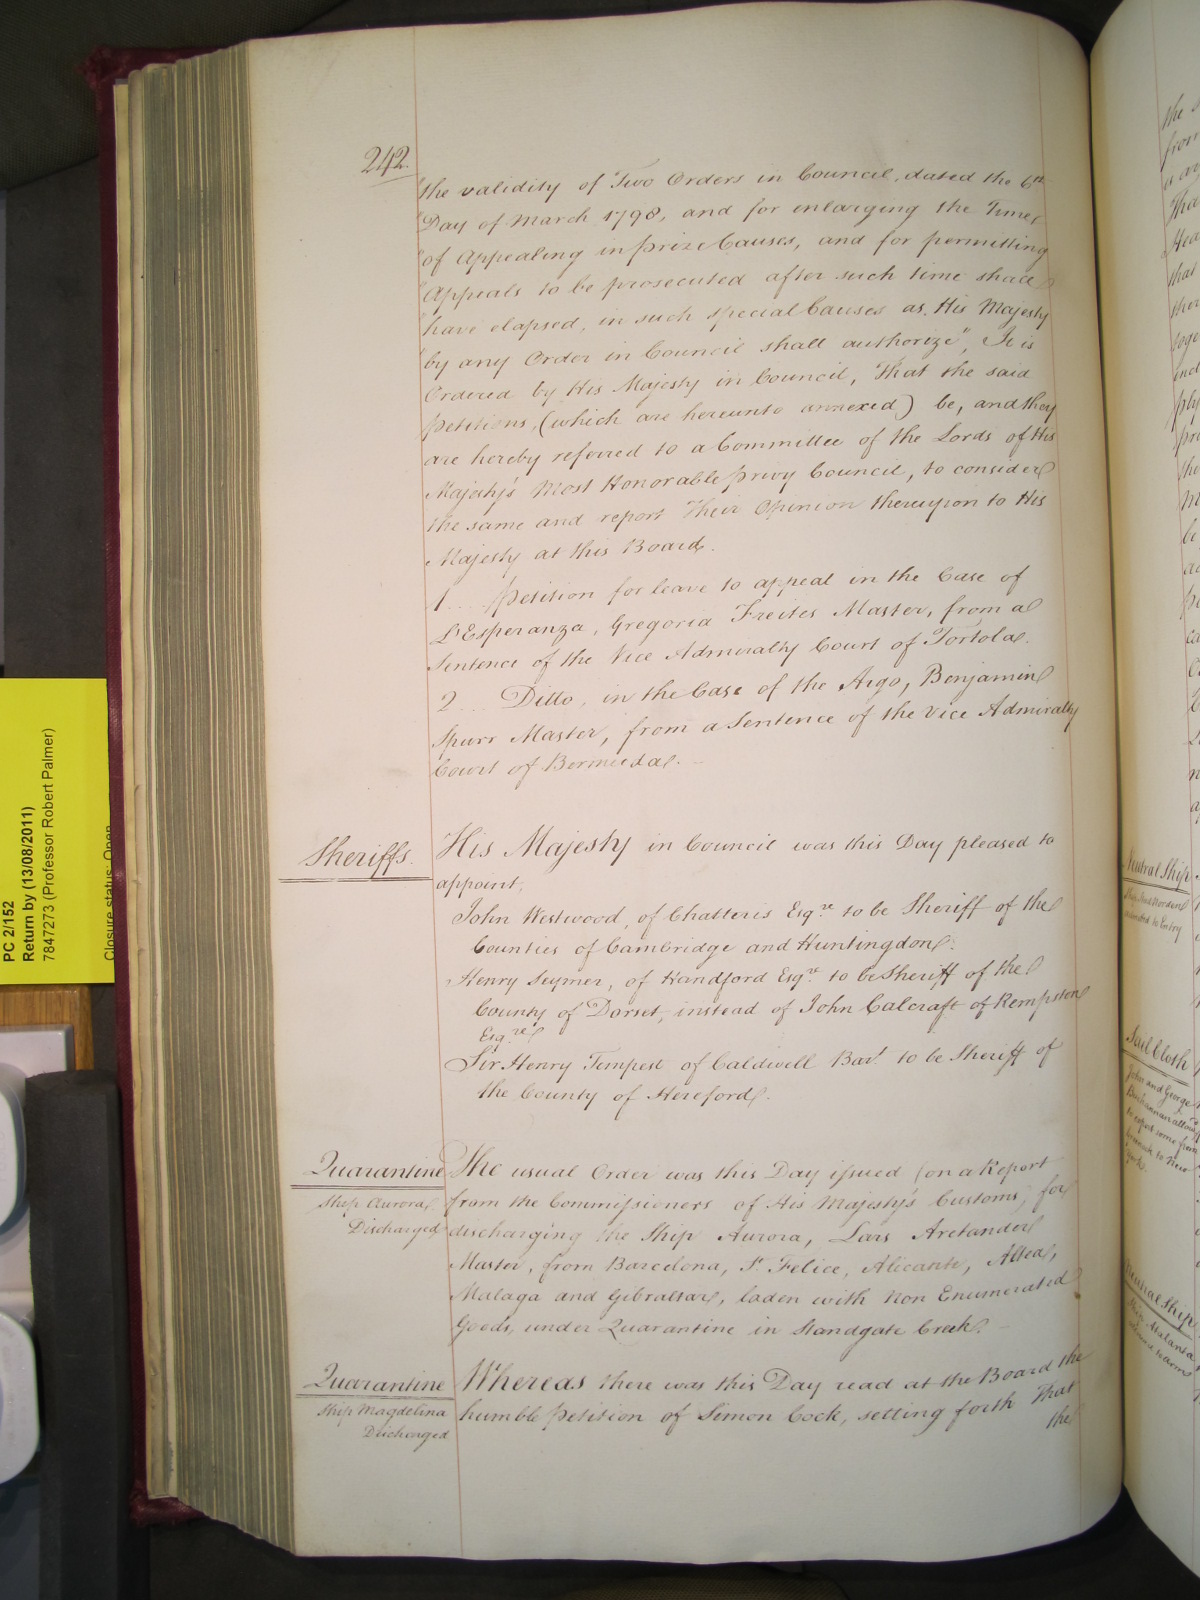 242.
"the validity of Two Orders in Council, dated the 6th
"Day of March 1798, and for enlarging the Times
"of Appealing in prize Causes, and for permitting
"Appeals to be prosecuted after such time shall
"have elapsed, in such special Causes as His Majesty
"by any Order in Council shall authorize", It is
Ordered by His Majesty in Council, That the said
petitions, (which are hereunto annexed) be, and they
are hereby referred to a Committee of the Lords of His
Majesty's Most Honorable privy Council, to consider
the same and report Their Opinion thereupon to His
Majesty at this Board.
1... petition for leave to appeal in the Case of
L'Esperanza, Gregoria Freites Master, from a
Sentence of the Vice Admiralty Court of Tortola.
2... Ditto, in the Case of the Argo, Benjamin
Spurr Master, from a Sentence of the Vice Admiralty
Court of Bermuda.
Sheriffs.
His Majesty in Council was this Day pleased to
appoint,
John Westwood, of Chatteris Esqre to be Sheriff of the
Counties of Cambridge and Huntingdon.
Henry Seymer, of Handford Esqre to be Sheriff of the
County of Dorset, instead of John Calcraft of Rempstone
Esqre
Sir Henry Tempest of Caldwell Bart to be Sheriff of
the County of Hereford.
Quarantine
Ship Aurora
Discharged
The usual Order was this Day issued (on a Report
from the Commissioners of His Majesty's Customs) for
discharging the Ship Aurora, Lars Aretander
Master, from Barcelona, St. Felice, Alicante, Altea,
Malaga and Gibraltar, laden with Non Enumerated
Goods, under Quarantine in Standgate Creek.
Quarantine
Ship Magdelina
Discharged
Whereas there was this Day read at the Board the
humble petition of Simon Cock, setting forth That
the
PC 2/152
Return by (13/08/2011)
7847273 (Professor Robert Palmer)
Closure status: Open
Neutral Ship
Sail Cloth
John and George
Buchannan allowed
to export some from
Greenock to New
York.
Neutral Ship